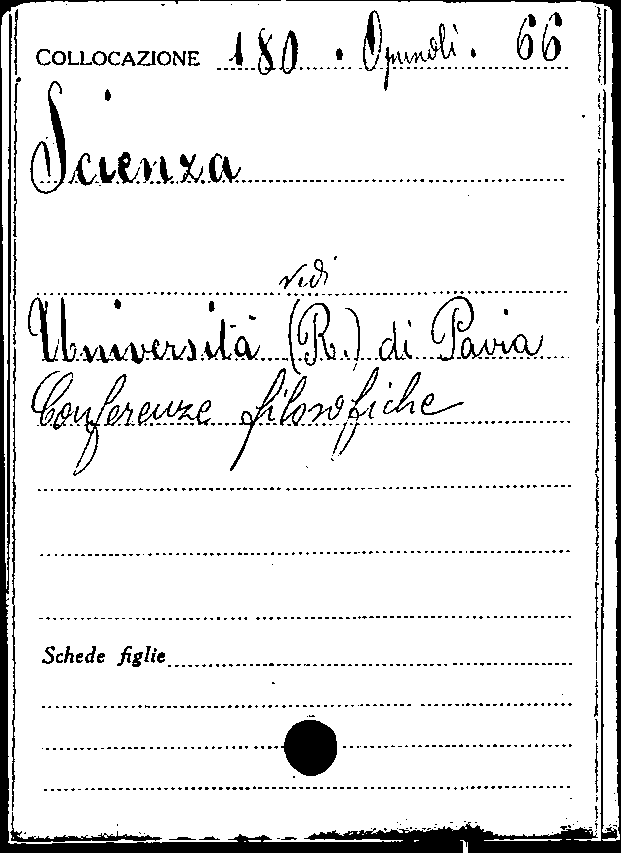 COLLOCAZIONE 180 . Opuscoli . 66
Scienza
vedi
Università (R.) di Pavia
Conferenze filosofiche
Schede figlie